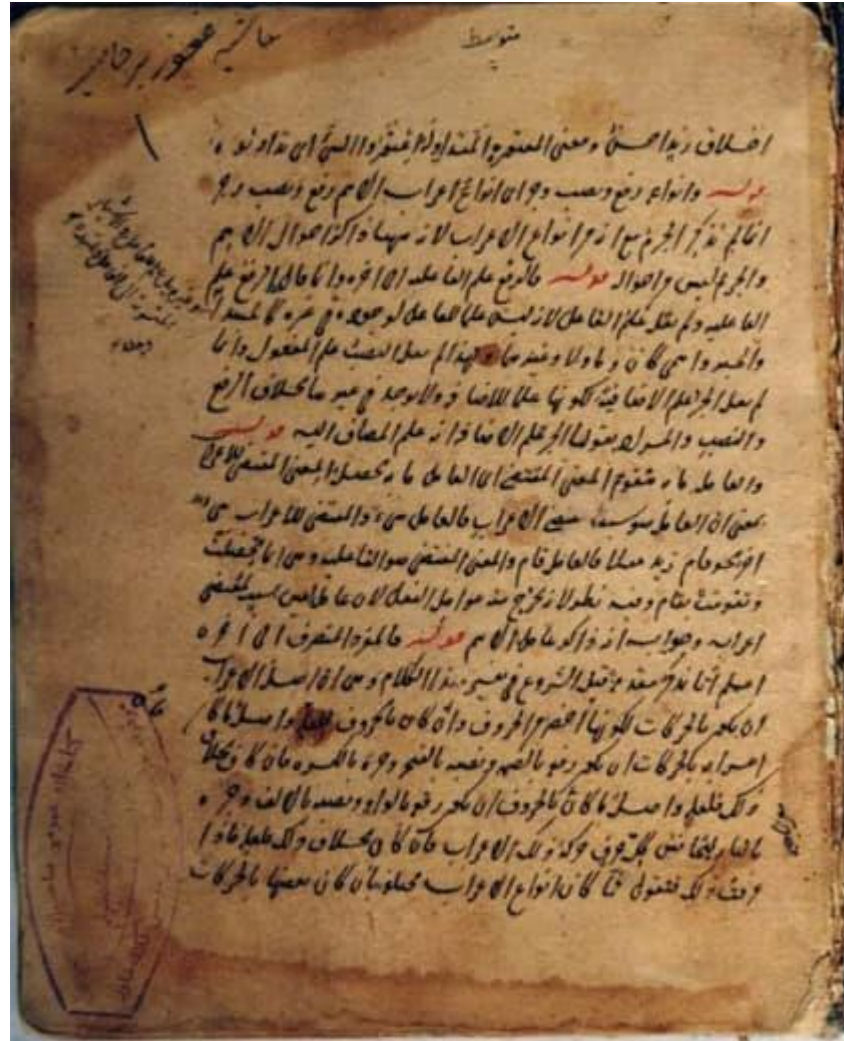 متوسط
حاشیه غفور بر جامی
اختلاف زيدا حسن ومعنى المعتورة المتداولة اعتوروا الشئ اى تداولوه
قوله وانواعه رفع ونصب وجر اى انواع اعراب الاسم رفع ونصب وجر
انما لم يذكر الجزم مع انه من انواع الاعراب لانه ههنا ذاكر احوال الاسم
والجزم ليس من احواله قوله فالرفع علم الفاعلية الى آخره وانما قال الرفع علم
الفاعلية ولم يقل علم الفاعل لانه ليس علما للفاعل لوجوده فى غيره كالمبتدأ
والخبر واسم كان وما ولا وغيرها ولهذا لم يقل النصب علم المفعول وانما
لم يقل الجر علم الاضافية لكونها علما للاضافة ولا يوجد فى غيرها بخلاف الرفع
والنصب والمراد بقولنا الجر علم الاضافة انه علم المضاف اليه قوله
والعامل ما به يتقوم المعنى المقتضى اى العامل ما به يحصل المعنى المقتضى للاعراب
بمعنى ان العامل بتوسط الاعراب فالعامل شىء والمقتضى للاعراب شىء
آخر نحو قام زيد مثلا فالعامل قام والمعنى المقتضى هو الفاعلية وهى انما تحصلت
وتقومت بقام وفيه نظر لانه يخرج منه عوامل الفعل لان عاملها ليس بسبب لمقتضى
اعرابه وجوابه انه ذاكر عامل الاسم قوله فالمفرد المنصرف الى آخره
اعلم انا نذكر مقدمة قبل الشروع فى تفسير هذا الكلام وهى ان اصل الاعراب
ان يكون بالحركات لكونها اخصر من الحروف وان كان بالحروف فلعلة واصل ما كان
اعرابه بالحركات ان يكون رفعه بالضمة ونصبه بالفتحة وجره بالكسرة فان كان بخلاف
ذلك فلعلة واصل ما كان بالحروف ان يكون رفعه بالواو ونصبه بالالف وجره
بالياء ليجانس كل حرف حركة ذلك الاعراب فان كان بخلاف ذلك فلعلة فاذا
عرفت ذلك فنقول لما كان انواع الاعراب مختلفة بان كان بعضها بالحركات